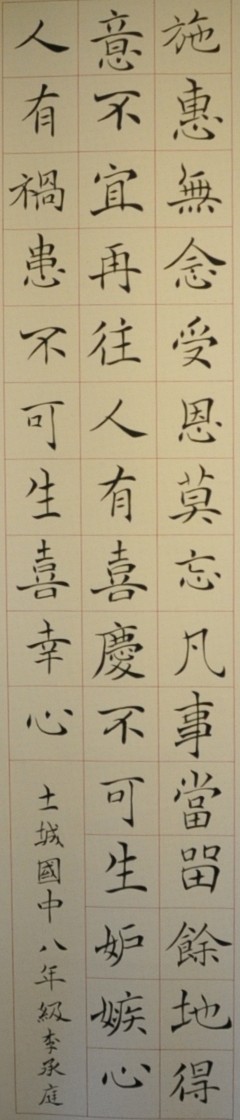 施惠無念受恩莫忘凡事當留餘地得
意不宜再往人有喜慶不可生妒嫉心
人有禍患不可生喜幸心
土城國中八年級李承庭